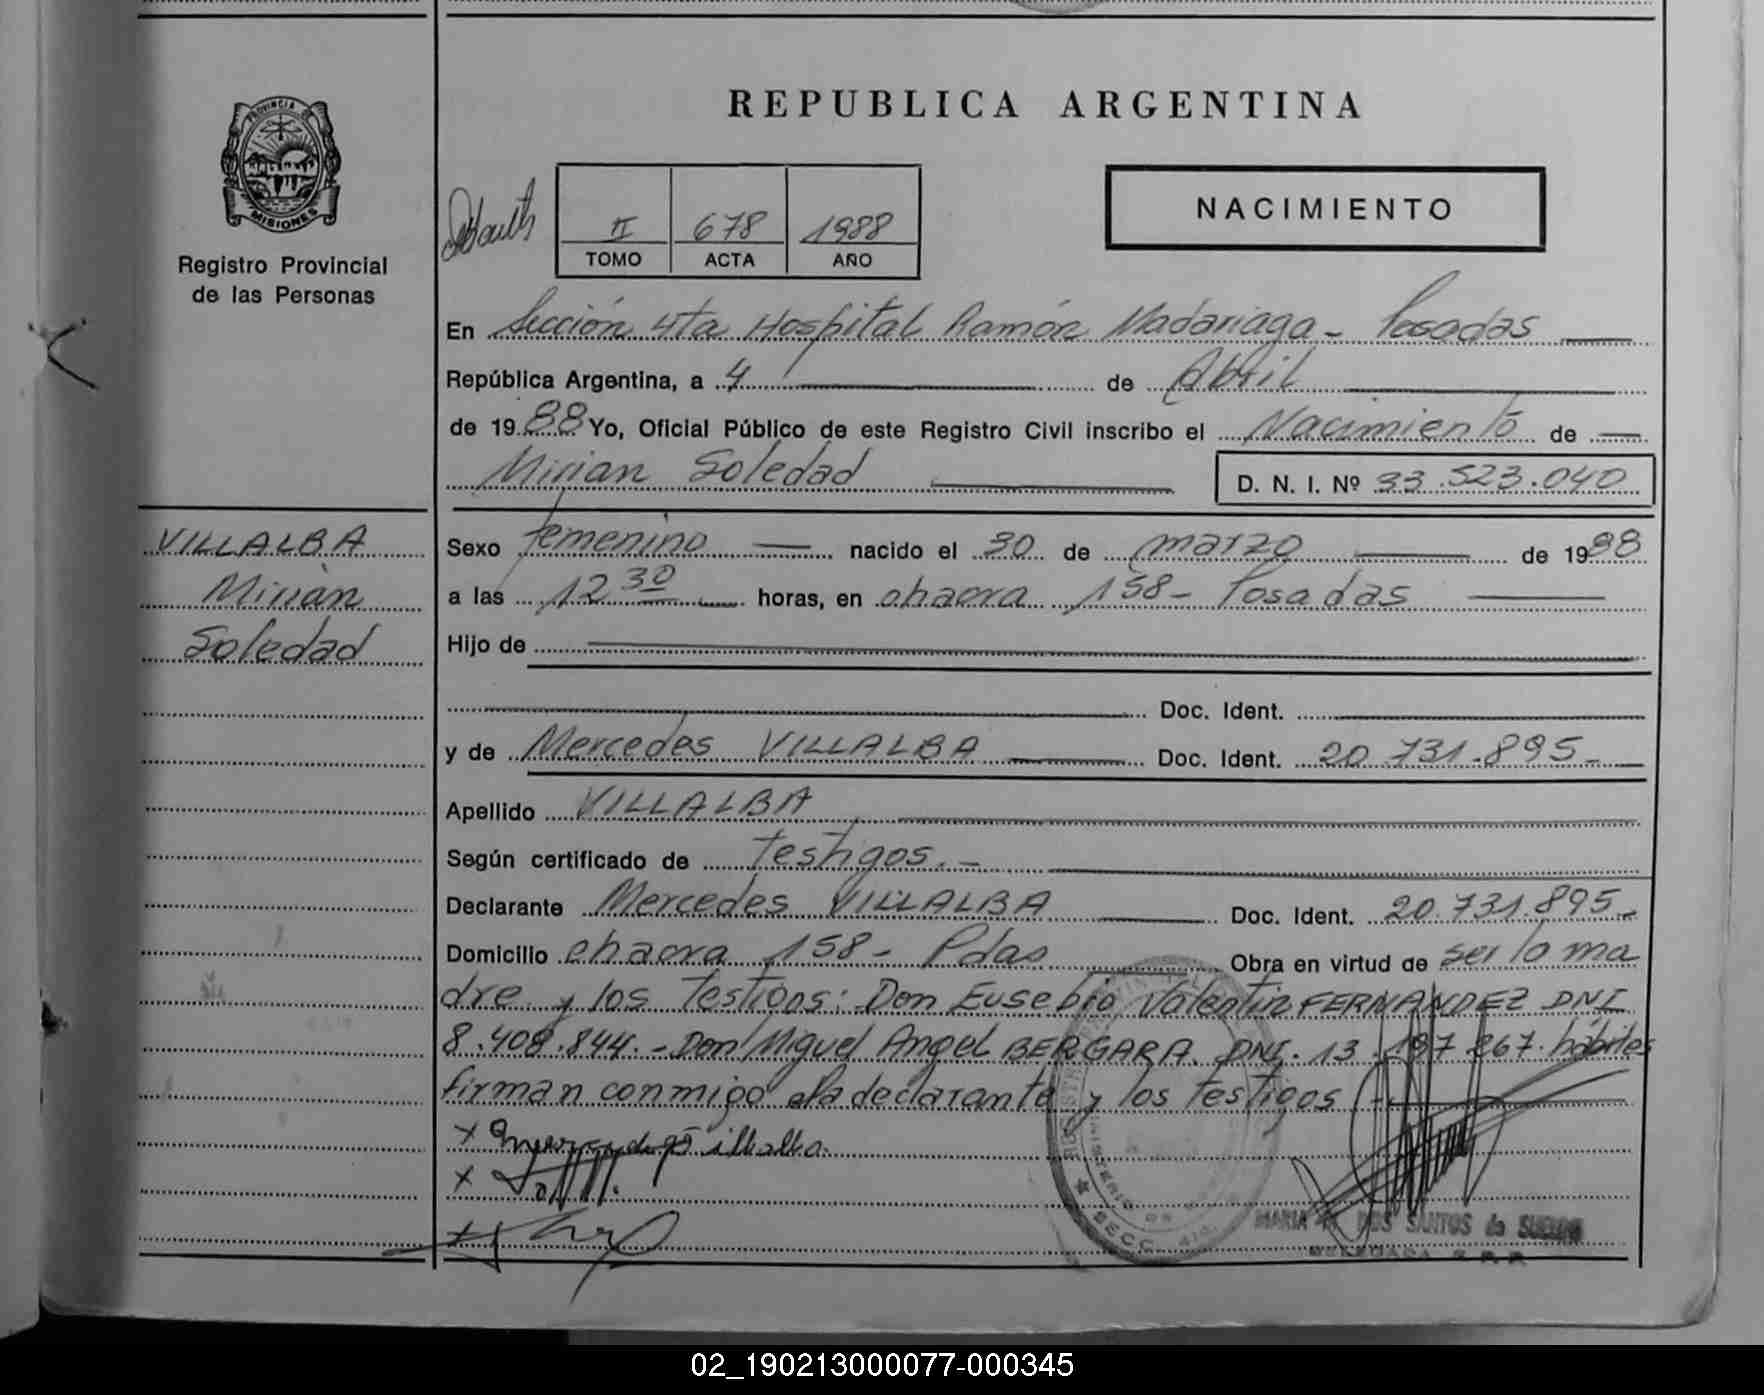 REPUBLICA ARGENTINA
PROVINCIA DE
MISIONES
Registro Provincial
de las Personas
II 678 1988
TOMO ACTA AÑO
NACIMIENTO
En Sección 4ta Hospital Ramón Madariaga - Posadas
República Argentina, a 4 de Abril
de 1988 Yo, Oficial Público de este Registro Civil inscribo el Nacimiento de
Mirian Soledad
D. N. I. Nº 33.523.040
VILLALBA
Mirian
Soledad
Sexo femenino nacido el 30 de marzo de 1988
a las 12 30 horas, en chacra 158 - Posadas
Hijo de
Doc. Ident.
y de Mercedes VILLALBA Doc. Ident. 20.731.895-
Apellido VILLALBA
Según certificado de testigos.-
Declarante Mercedes VILLALBA Doc. Ident. 20.731.895-
Domicilio chacra 158 - Pdas Obra en virtud de ser la ma
dre y los testigos: Don Eusebio Valentin FERNANDEZ DNI
8.408.844.- Don Miguel Angel BERGARA. DNI. 13.197.267. hábiles
firman conmigo la declarante y los testigos -
x Mercedes Villalba.
x
x
SECC. 4ta.
MARIA DOS SANTOS de
DELEGADA R.P.P
02_190213000077-000345